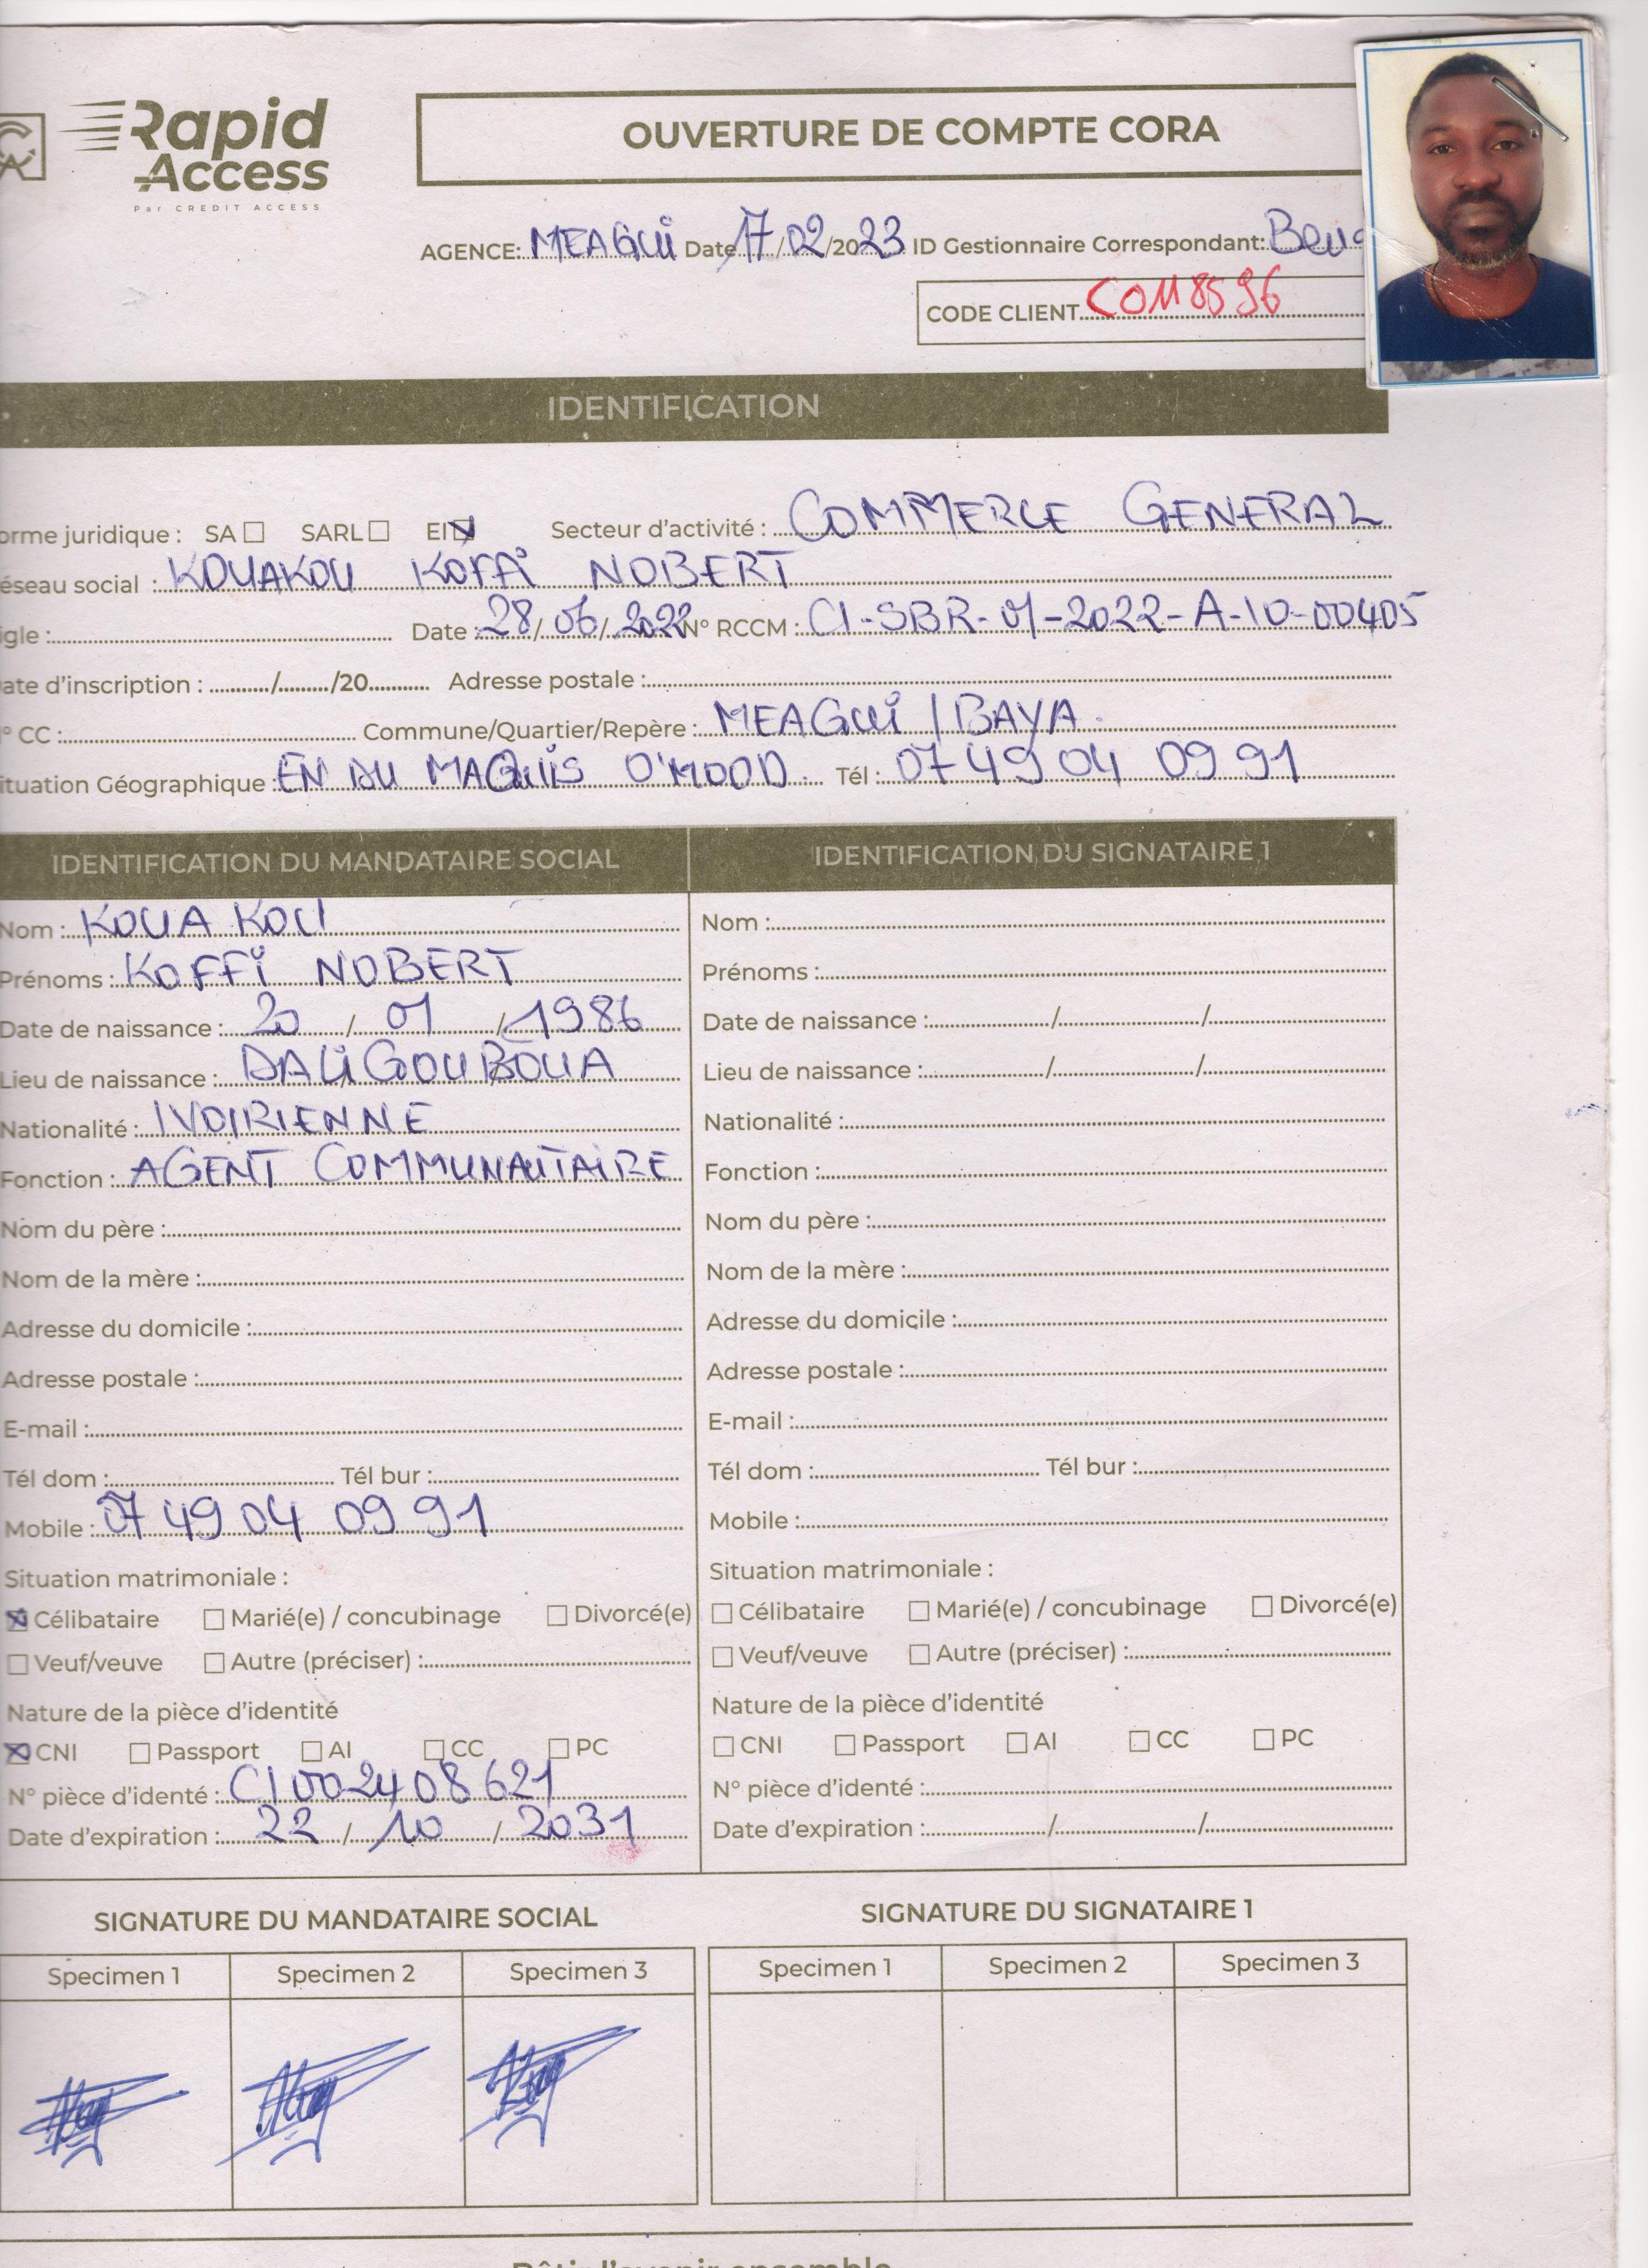 Rapid
Access
Par CREDIT ACCESS
OUVERTURE DE COMPTE CORA
AGENCE: MEAGUI Date 17/02/2023 ID Gestionnaire Correspondant:
CODE CLIENT C0118596
IDENTIFICATION
orme juridique : SA ☐ SARL ☐ EI ☒ Secteur d'activité : COMMERCE GENERAL
éseau social : KOUAKOU KOFFI NOBERT
igle : Date : 28/06/2022 N° RCCM : CI-SBR-01-2022-A-10-00405
ate d'inscription : ........../........./20........... Adresse postale :
° CC : Commune/Quartier/Repère : MEAGUI / BAYA
ituation Géographique : EN DU MAQUIS O'MOOD. Tél : 07 49 04 09 91
IDENTIFICATION DU MANDATAIRE SOCIAL
Nom : KOUAKOU
Prénoms : KOFFI NOBERT
Date de naissance : 20 / 01 / 1986
Lieu de naissance : DALIGOUBOUA
Nationalité : IVOIRIENNE
Fonction : AGENT COMMUNAUTAIRE
Nom du père :
Nom de la mère :
Adresse du domicile :
Adresse postale :
E-mail :
Tél dom : Tél bur :
Mobile : 07 49 04 09 91
Situation matrimoniale :
☒ Célibataire ☐ Marié(e) / concubinage ☐ Divorcé(e)
☐ Veuf/veuve ☐ Autre (préciser) :
Nature de la pièce d'identité
☒ CNI ☐ Passport ☐ AI ☐ CC ☐ PC
N° pièce d'identé : CI002408621
Date d'expiration : 22 / 10 / 2031
IDENTIFICATION DU SIGNATAIRE 1
Nom :
Prénoms :
Date de naissance : / /
Lieu de naissance : / /
Nationalité :
Fonction :
Nom du père :
Nom de la mère :
Adresse du domicile :
Adresse postale :
E-mail :
Tél dom : Tél bur :
Mobile :
Situation matrimoniale :
☐ Célibataire ☐ Marié(e) / concubinage ☐ Divorcé(e)
☐ Veuf/veuve ☐ Autre (préciser) :
Nature de la pièce d'identité
☐ CNI ☐ Passport ☐ AI ☐ CC ☐ PC
N° pièce d'identé :
Date d'expiration : / /
SIGNATURE DU MANDATAIRE SOCIAL
Specimen 1 Specimen 2 Specimen 3
SIGNATURE DU SIGNATAIRE 1
Specimen 1 Specimen 2 Specimen 3
Bâtir l'avenir ensemble